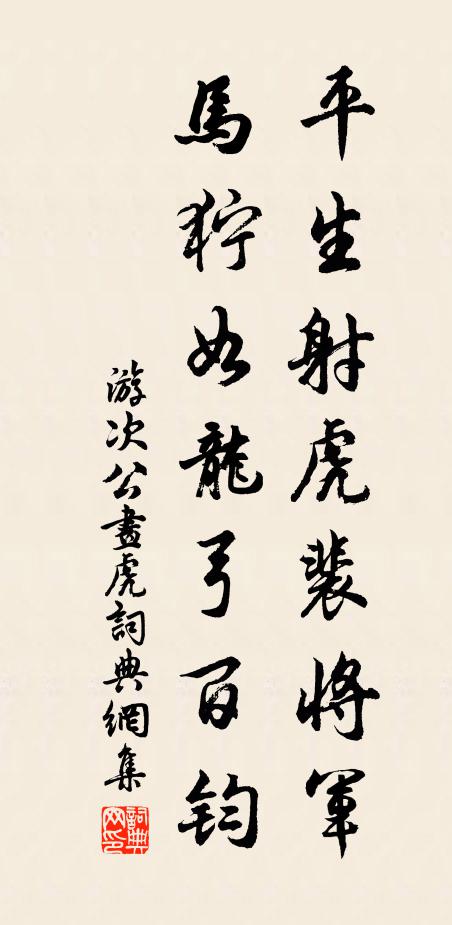 平生射虎裴將軍
馬狞如龍弓百鈞
游次公畫虎詞典網集
詞典网印